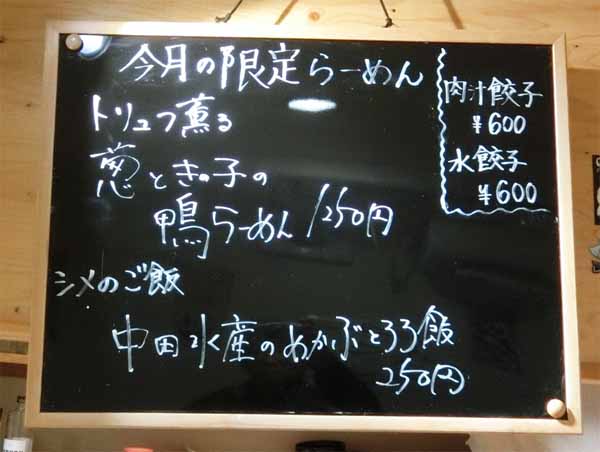 今月の限定らーめん
トリュフ薫る
葱ときの子の
鴨らーめん 1250円
シメのご飯
中田水産のめかぶとろろ飯
250円
肉汁餃子
¥600
水餃子
¥600